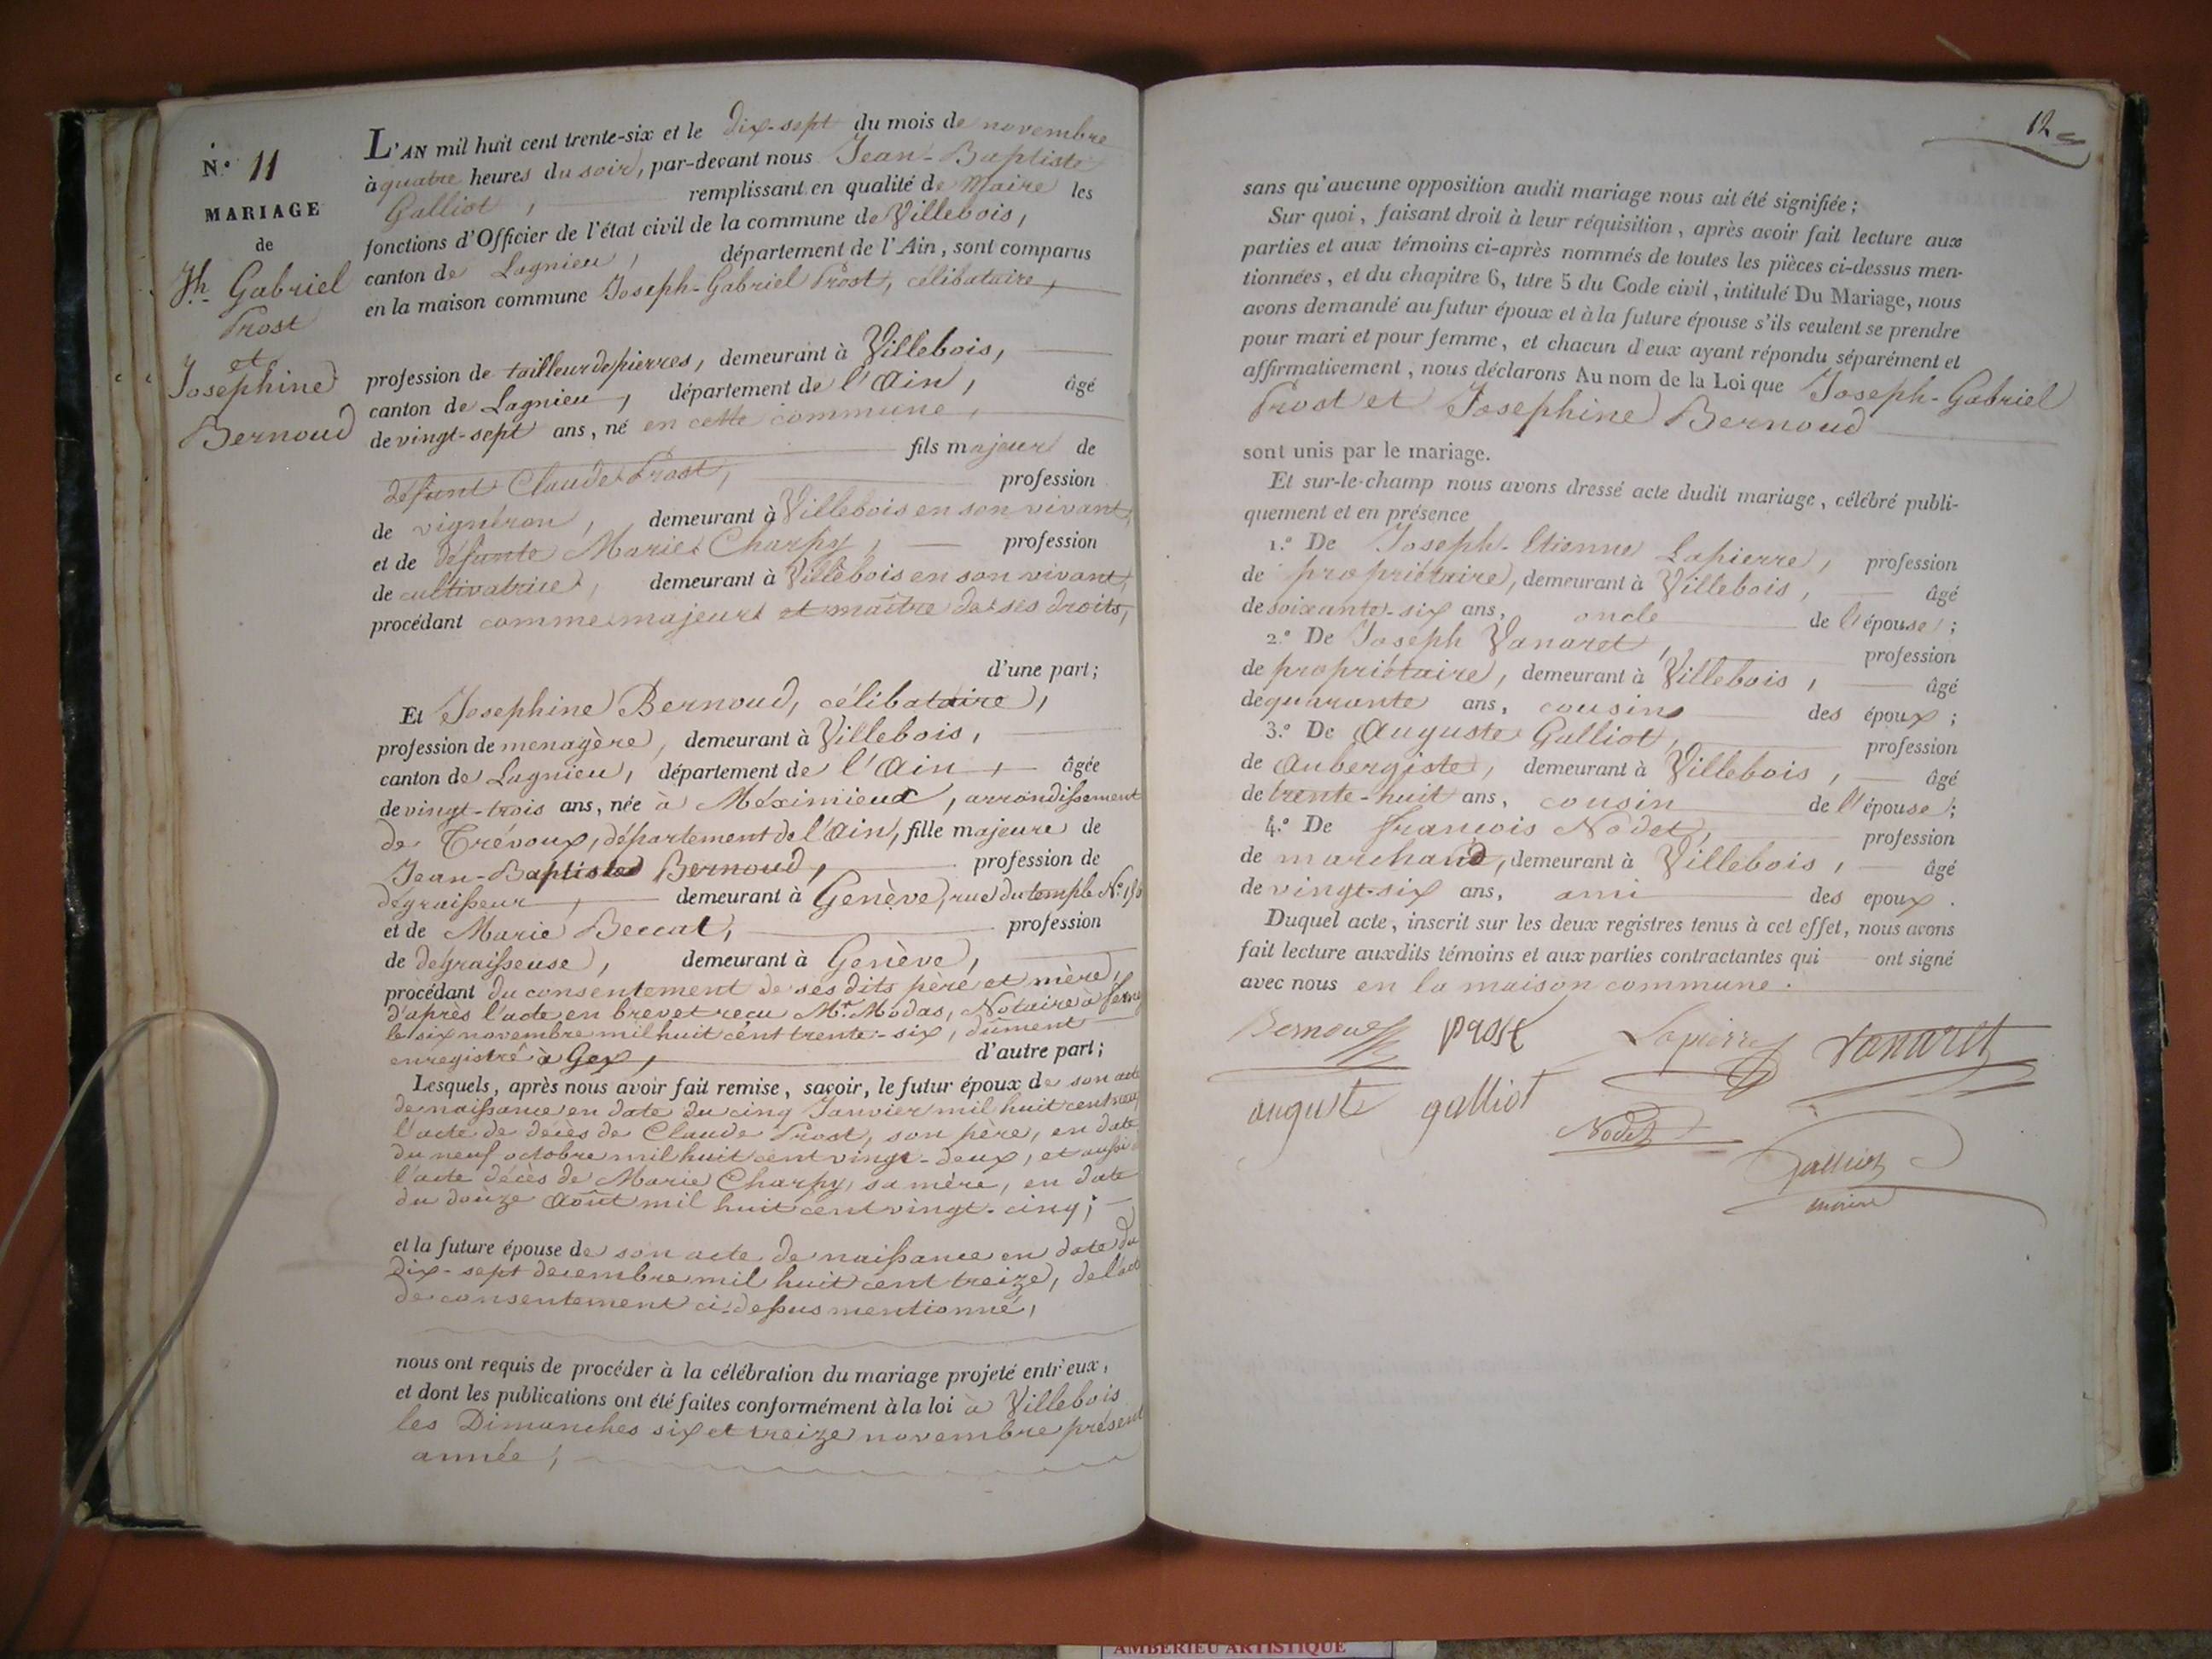 N.º 11
MARIAGE
de
Jh. Gabriel
Prost
et
Josephine
Bernoud
L'AN mil huit cent trente-six et le dix-sept du mois de novembre
à quatre heures du soir, par-devant nous Jean-Baptiste
Galliot, remplissant en qualité de Maire les
fonctions d'Officier de l'état civil de la commune de Villebois,
canton de Lagnieu, département de l'Ain, sont comparus
en la maison commune Joseph-Gabriel Prost, célibataire,
profession de tailleur de pierres, demeurant à Villebois,
canton de Lagnieu, département de l'Ain, âgé
de vingt-sept ans, né en cette commune,
fils majeur de
défunt Claude Prost, profession
de vigneron, demeurant à Villebois en son vivant,
et de défunte Marie Charpy, profession
de cultivatrice, demeurant à Villebois en son vivant,
procédant comme majeur et maître de ses droits,
d'une part;
Et Josephine Bernoud, célibataire,
profession de menagère, demeurant à Villebois,
canton de Lagnieu, département de l'Ain, âgée
de vingt-trois ans, née à Méximieux, arrondissement
de Trévoux, département de l'Ain, fille majeure de
Jean-Baptiste Bernoud, profession de
dégraisseur, demeurant à Genève, rue du temple N.º
et de Marie Beccat, profession
de dégraisseuse, demeurant à Genève,
procédant du consentement de ses dits père et mère,
d'après l'acte en brevet reçu Mr. Modas, Notaire à
le six novembre mil huit cent trente-six, dûment
enregistré à Gex, d'autre part;
Lesquels, après nous avoir fait remise, savoir, le futur époux de son acte
de naissance en date du cinq Janvier mil huit cent neuf
l'acte de décès de Claude Prost, son père, en date
du neuf octobre mil huit cent vingt-deux, et aussi
l'acte décès de Marie Charpy, sa mère, en date
du douze Août mil huit cent vingt-cinq;
et la future épouse de son acte de naissance en date du
dix-sept decembre mil huit cent treize, de l'acte
de consentement ci-dessus mentionné,
nous ont requis de procéder à la célébration du mariage projeté entr'eux,
et dont les publications ont été faites conformément à la loi à Villebois
les Dimanches six et treize novembre présent
année;
12
sans qu'aucune opposition audit mariage nous ait été signifiée;
Sur quoi, faisant droit à leur réquisition, après avoir fait lecture aux
parties et aux témoins ci-après nommés de toutes les pièces ci-dessus men-
tionnées, et du chapitre 6, titre 5 du Code civil, intitulé Du Mariage, nous
avons demandé au futur époux et à la future épouse s'ils veulent se prendre
pour mari et pour femme, et chacun d'eux ayant répondu séparément et
affirmativement, nous déclarons Au nom de la Loi que Joseph-Gabriel
Prost et Josephine Bernoud
sont unis par le mariage.
Et sur-le-champ nous avons dressé acte dudit mariage, célébré publi-
quement et en présence
1.º De Joseph-Etienne Lapierre, profession
de propriétaire, demeurant à Villebois, âgé
de soixante-six ans, oncle de l'épouse;
2.º De Joseph Vanaret, profession
de propriétaire, demeurant à Villebois, âgé
de quarante ans, cousins des époux;
3.º De Auguste Galliot, profession
de Aubergiste, demeurant à Villebois, âgé
de trente-huit ans, cousin de l'épouse;
4.º De francois Nodet, profession
de marchand, demeurant à Villebois, âgé
de vingt-six ans, ami des epoux.
Duquel acte, inscrit sur les deux registres tenus à cet effet, nous avons
fait lecture auxdits témoins et aux parties contractantes qui ont signé
avec nous en la maison commune.
Bernoud prost Lapierre vanaret
auguste galliot Nodet
Galliot
maire
AMBERIEU ARTISTIQUE